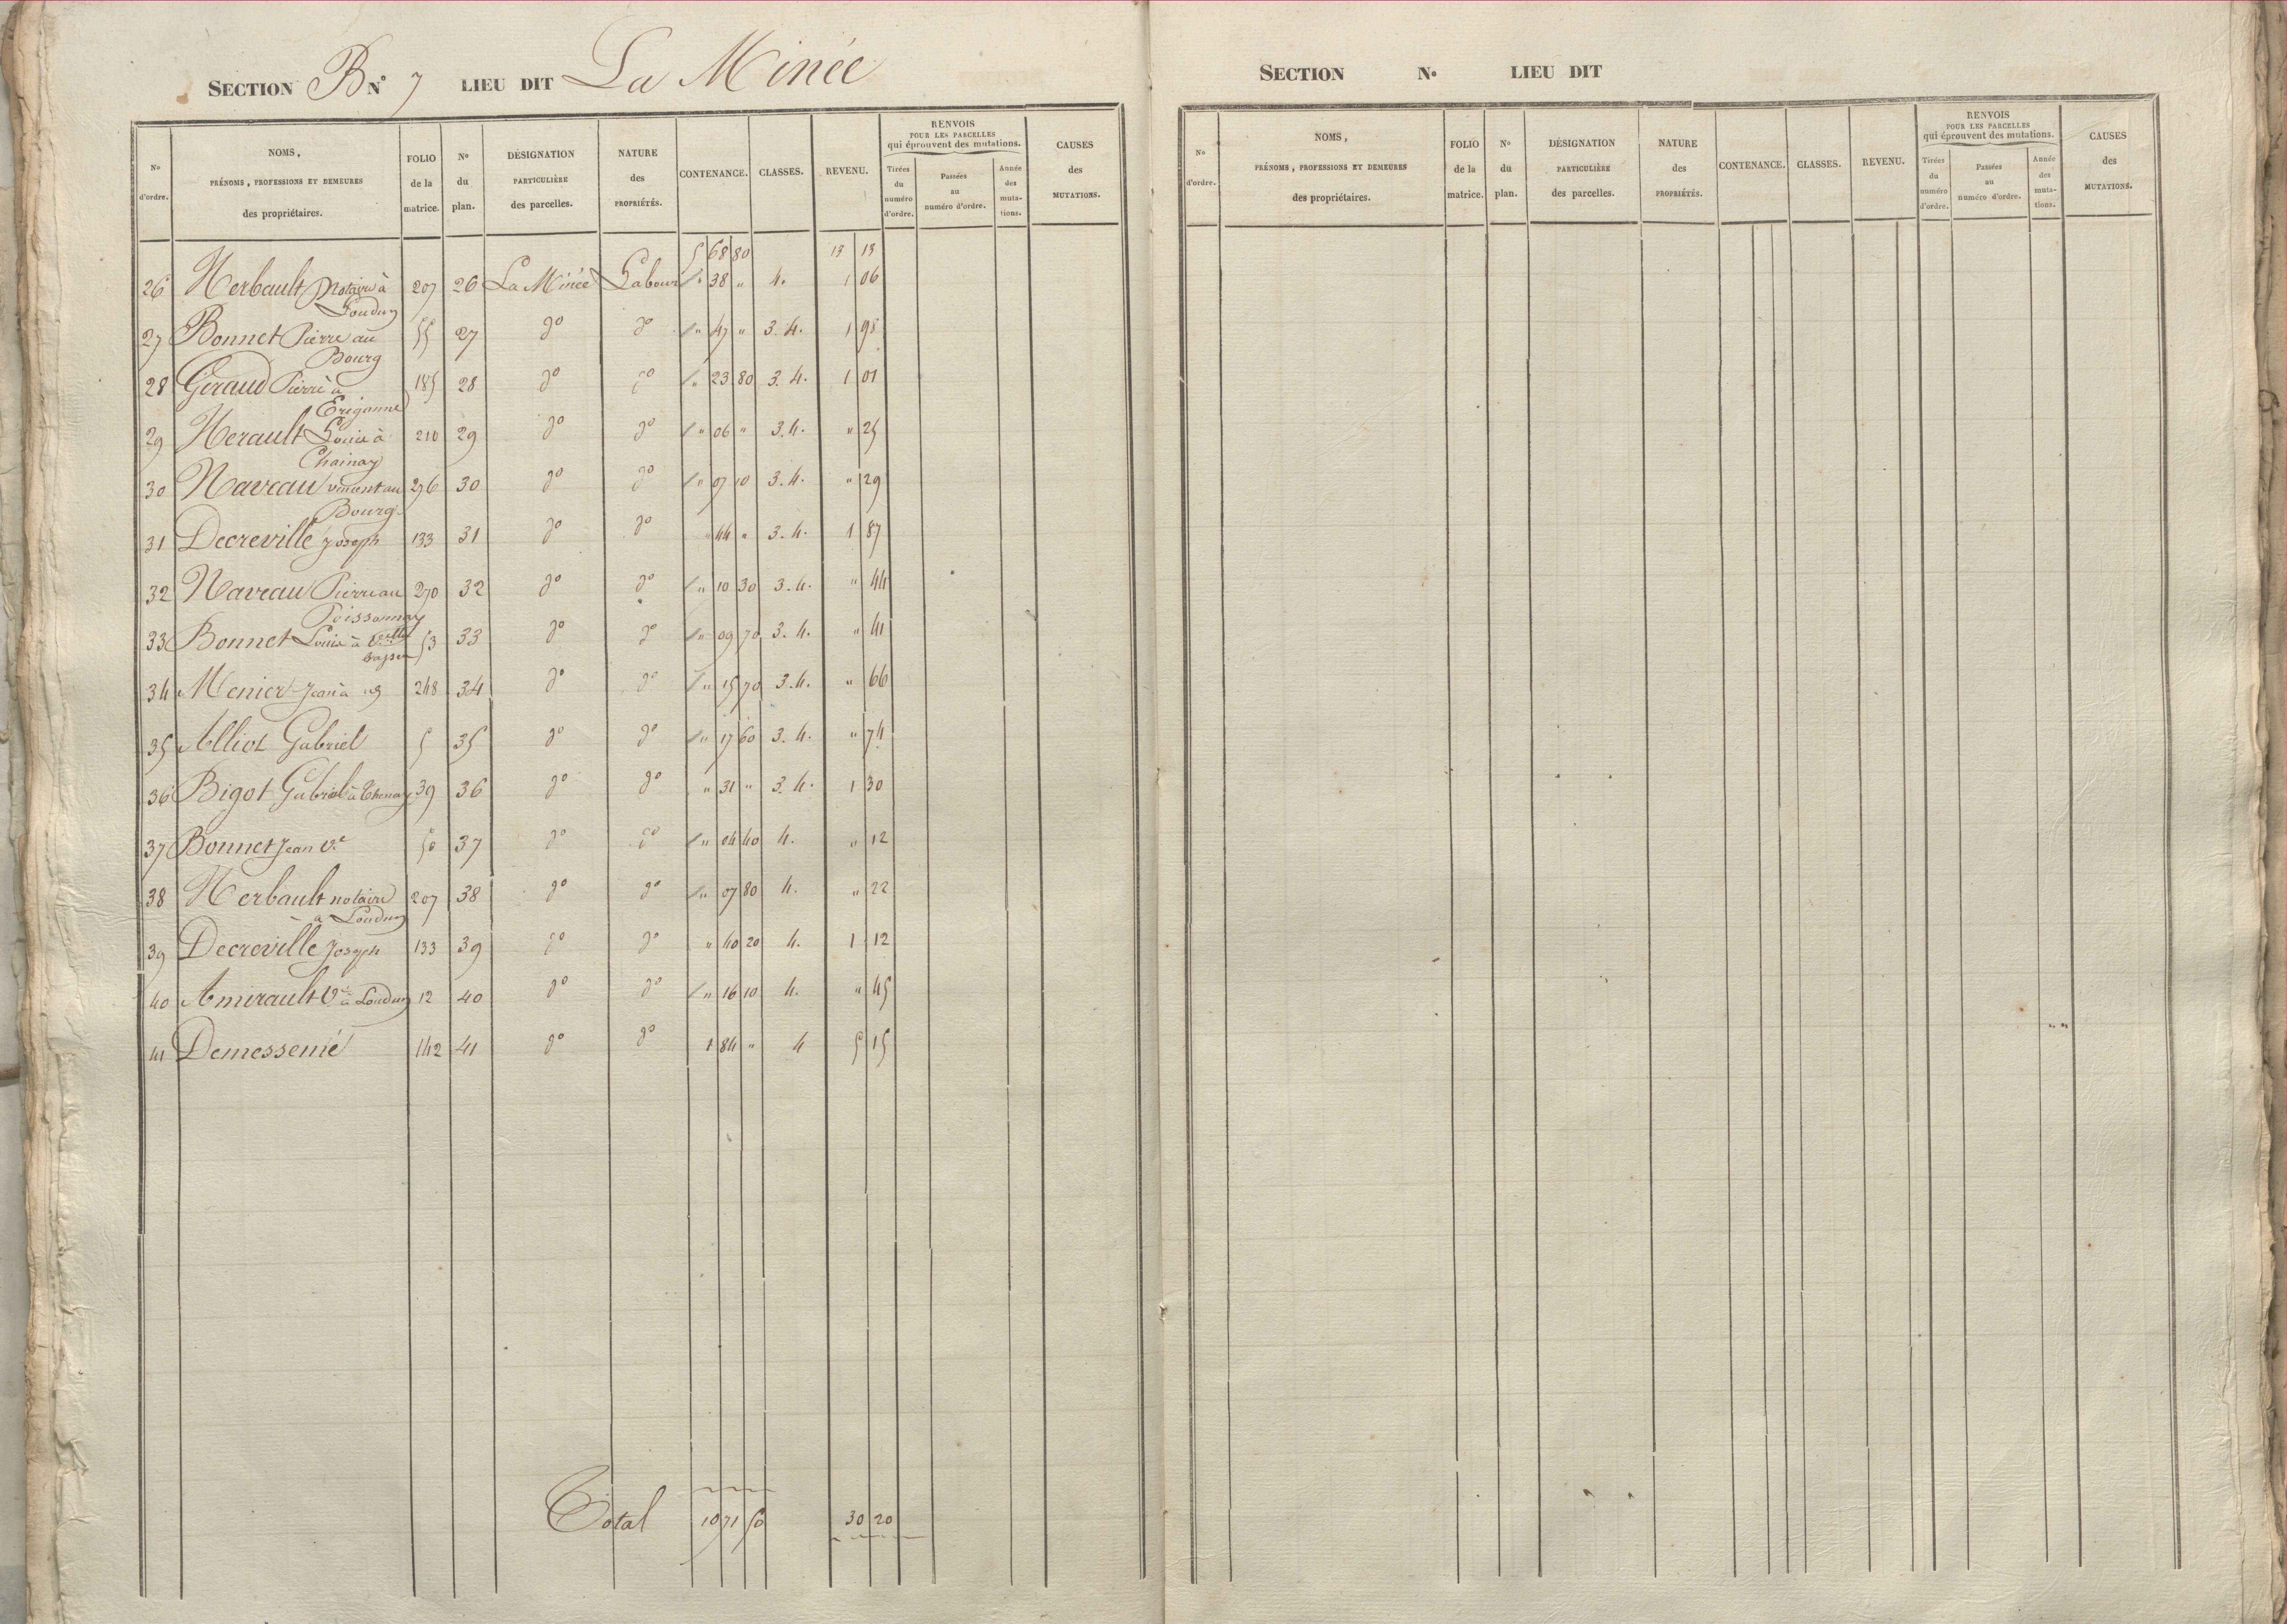 SECTION B N° 7 LIEU DIT La Minée
N° d'ordre.
NOMS, PRÉNOMS, PROFESSIONS ET DEMEURES des propriétaires.
FOLIO de la matrice.
N° du plan.
DÉSIGNATION PARTICULIÈRE des parcelles.
NATURE des PROPRIÉTÉS.
CONTENANCE.
CLASSES.
REVENU.
RENVOIS POUR LES PARCELLES qui éprouvent des mutations.
Tirées du numéro d'ordre.
Passées au numéro d'ordre.
Année des mutations.
CAUSES des MUTATIONS.
5 68 80 13 13
26 Herbault Notaire à 207 26 La Minée Labour " 38 " 4. 1 06
Loudun
27 Bonnet Pierre au 55 27 do do " 47 " 3. 4. 1 98
Bourg
28 Giraud Pierre à 185 28 do do " 23 80 3. 4. 1 01
29 Herault Louis à 210 29 do do " 06 " 3. 4. " 25
Chainay
30 Naveau vincent au 276 30 do do " 07 10 3. 4. " 29
Bourg
31 Decreville Joseph 133 31 do do " 44 " 3. 4. 1 87
32 Naveau Pierre au 270 32 do do " 10 30 3. 4. " 44
Poissonnay
33 Bonnet Louis à 53 33 do do " 09 70 3. 4. " 41
34 Menier Jean à 248 34 do do " 15 70 3. 4. " 66
35 Alliot Gabriel 5 35 do do " 17 60 3. 4. " 74
36 Bigot Gabriel à Chenay 39 36 do do " 31 " 3. 4. 1 30
37 Bonnet Jean Ve 50 37 do do " 04 40 4. " 12
38 Herbault notaire 207 38 do do " 07 80 4. " 22
à Loudun
39 Decreville Joseph 133 39 do do " 40 20 4. 1 12
40 Amirault Ve à Loudun 12 40 do do " 16 10 4. " 45
41 Demessemé 142 41 do do 1 84 " 4 5 15
Total 10 71 50 30 20
SECTION N° LIEU DIT
N° d'ordre.
NOMS, PRÉNOMS, PROFESSIONS ET DEMEURES des propriétaires.
FOLIO de la matrice.
N° du plan.
DÉSIGNATION PARTICULIÈRE des parcelles.
NATURE des PROPRIÉTÉS.
CONTENANCE.
CLASSES.
REVENU.
RENVOIS POUR LES PARCELLES qui éprouvent des mutations.
Tirées du numéro d'ordre.
Passées au numéro d'ordre.
Année des mutations.
CAUSES des MUTATIONS.